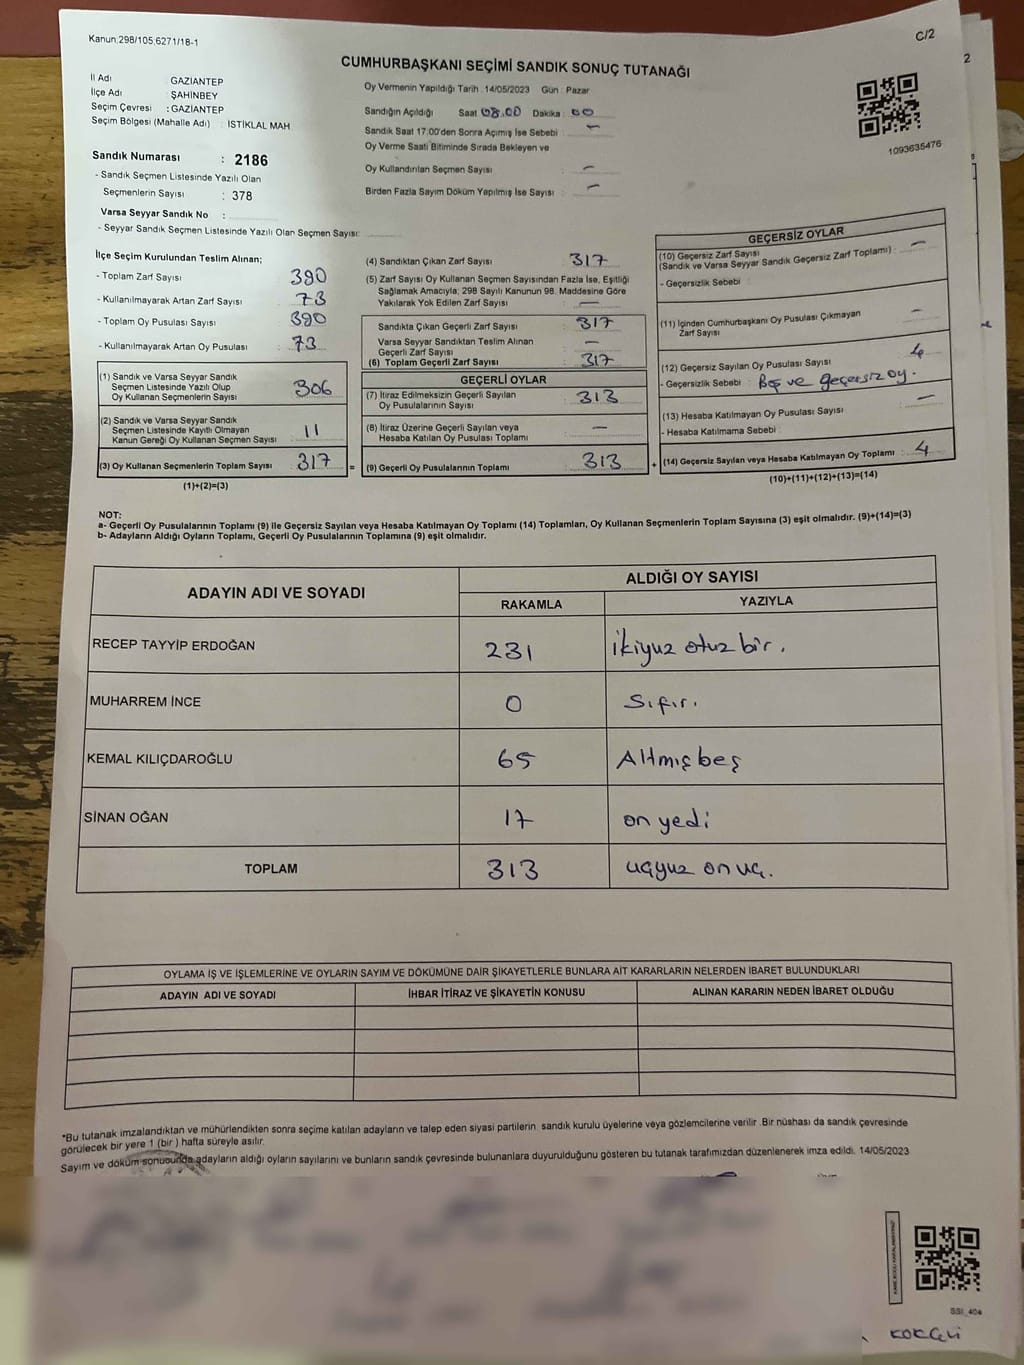 Kanun;298/105,6271/18-1
C/2
CUMHURBAŞKANI SEÇİMİ SANDIK SONUÇ TUTANAĞI
İl Adı GAZİANTEP
İlçe Adı : ŞAHİNBEY
Seçim Çevresi : GAZİANTEP
Seçim Bölgesi (Mahalle Adı) : İSTİKLAL MAH
Sandık Numarası : 2186
- Sandık Seçmen Listesinde Yazılı Olan
Seçmenlerin Sayısı : 378
Varsa Seyyar Sandık No :
- Seyyar Sandık Seçmen Listesinde Yazılı Olan Seçmen Sayısı:
Oy Vermenin Yapıldığı Tarih : 14/05/2023 Gün : Pazar
Sandığın Açıldığı Saat 08.00 Dakika : 00
Sandık Saat 17.00'den Sonra Açımış İse Sebebi : —
Oy Verme Saati Bitiminde Sırada Bekleyen ve
Oy Kullandırılan Seçmen Sayısı : —
Birden Fazla Sayım Döküm Yapılmış İse Sayısı : —
1093635476
İlçe Seçim Kurulundan Teslim Alınan;
- Toplam Zarf Sayısı 390
- Kullanılmayarak Artan Zarf Sayısı : 73
- Toplam Oy Pusulası Sayısı : 390
- Kullanılmayarak Artan Oy Pusulası : 73
(1) Sandık ve Varsa Seyyar Sandık
Seçmen Listesinde Yazılı Olup
Oy Kullanan Seçmenlerin Sayısı 306
(2) Sandık ve Varsa Seyyar Sandık
Seçmen Listesinde Kayıtlı Olmayan
Kanun Gereği Oy Kullanan Seçmen Sayısı : 11
(3) Oy Kullanan Seçmenlerin Toplam Sayısı : 317 =
(1)+(2)=(3)
(4) Sandıktan Çıkan Zarf Sayısı : 317
(5) Zarf Sayısı Oy Kullanan Seçmen Sayısından Fazla İse, Eşitliği
Sağlamak Amacıyla; 298 Sayılı Kanunun 98. Maddesine Göre
Yakılarak Yok Edilen Zarf Sayısı : —
Sandıkta Çıkan Geçerli Zarf Sayısı : 317
Varsa Seyyar Sandıktan Teslim Alınan
Geçerli Zarf Sayısı : —
(6) Toplam Geçerli Zarf Sayısı : 317
GEÇERLİ OYLAR
(7) İtiraz Edilmeksizin Geçerli Sayılan
Oy Pusulalarının Sayısı : 313
(8) İtiraz Üzerine Geçerli Sayılan veya
Hesaba Katılan Oy Pusulası Toplamı : —
(9) Geçerli Oy Pusulalarının Toplamı : 313 +
GEÇERSİZ OYLAR
(10) Geçersiz Zarf Sayısı
(Sandık ve Varsa Seyyar Sandık Geçersiz Zarf Toplamı) : —
- Geçersizlik Sebebi :
(11) İçinden Cumhurbaşkanı Oy Pusulası Çıkmayan
Zarf Sayısı : —
(12) Geçersiz Sayılan Oy Pusulası Sayısı : 4
- Geçersizlik Sebebi : Boş ve geçersiz oy.
(13) Hesaba Katılmayan Oy Pusulası Sayısı : —
- Hesaba Katılmama Sebebi :
(14) Geçersiz Sayılan veya Hesaba Katılmayan Oy Toplamı : 4
(10)+(11)+(12)+(13)=(14)
NOT:
a- Geçerli Oy Pusulalarının Toplamı (9) ile Geçersiz Sayılan veya Hesaba Katılmayan Oy Toplamı (14) Toplamları, Oy Kullanan Seçmenlerin Toplam Sayısına (3) eşit olmalıdır. (9)+(14)=(3)
b- Adayların Aldığı Oyların Toplamı, Geçerli Oy Pusulalarının Toplamına (9) eşit olmalıdır.
ADAYIN ADI VE SOYADI ALDIĞI OY SAYISI
RAKAMLA YAZIYLA
RECEP TAYYİP ERDOĞAN 231 ikiyuz otuz bir.
MUHARREM İNCE 0 Sıfır.
KEMAL KILIÇDAROĞLU 65 Altmışbeş
SİNAN OĞAN 17 on yedi
TOPLAM 313 uçyuz on uç.
OYLAMA İŞ VE İŞLEMLERİNE VE OYLARIN SAYIM VE DÖKÜMÜNE DAİR ŞİKAYETLERLE BUNLARA AİT KARARLARIN NELERDEN İBARET BULUNDUKLARI
ADAYIN ADI VE SOYADI İHBAR İTİRAZ VE ŞİKAYETİN KONUSU ALINAN KARARIN NEDEN İBARET OLDUĞU
*Bu tutanak imzalandıktan ve mühürlendikten sonra seçime katılan adayların ve talep eden siyasi partilerin, sandık kurulu üyelerine veya gözlemcilerine verilir .Bir nüshası da sandık çevresinde
görülecek bir yere 1 (bir ) hafta süreyle asılır.
Sayım ve döküm sonucunda adayların aldığı oyların sayılarını ve bunların sandık çevresinde bulunanlara duyurulduğunu gösteren bu tutanak tarafımızdan düzenlenerek imza edildi. 14/05/2023
SSI_404